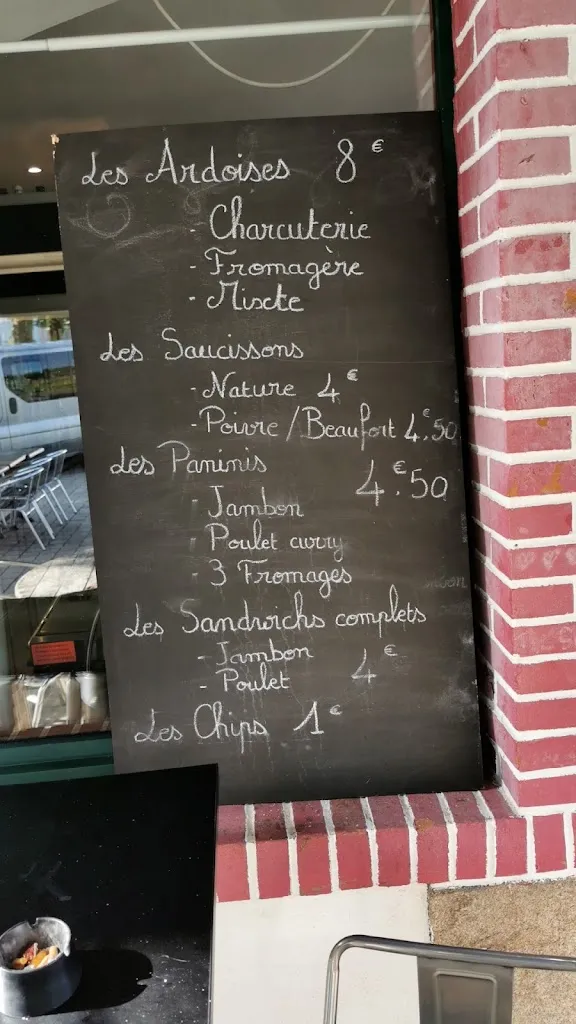 Les Ardoises 8€
- Charcuterie
- Fromagère
- Mixte
Les Saucissons
- Nature 4€
- Poivre / Beaufort 4€.50
Les Paninis 4€.50
- Jambon
- Poulet curry
- 3 Fromages
Les Sandwichs complets
- Jambon
- Poulet 4€
Les Chips 1€